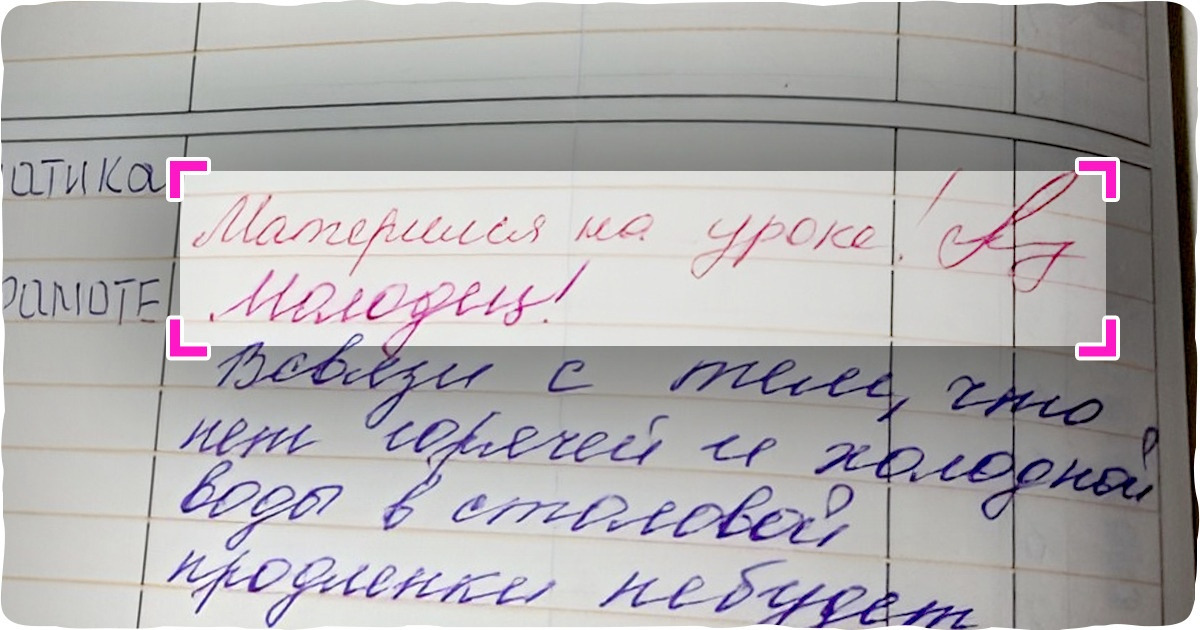 атика
Матерился на уроке!
рамоте
Молодец!
Всвязи с тем, что
нет горячей и холодной
воды в столовой
продленки небудет